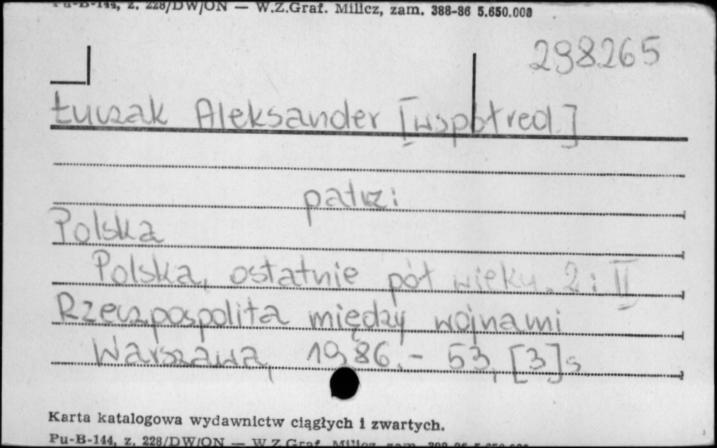 Pu-B-144, z. 228/DW/ON — W.Z.Graf. Milicz, zam. 388-86 5.650.000
298265
Łuczak Aleksander [współred.]
patrz:
Polska
Polska, ostatnie pół wieku. 2: II
Rzeczpospolita między wojnami
Warszawa, 1986.- 53, [3]s
Karta katalogowa wydawnictw ciągłych i zwartych.
Pu-B-144, z. 228/DW/ON — W.Z.Graf. Milicz, zam.